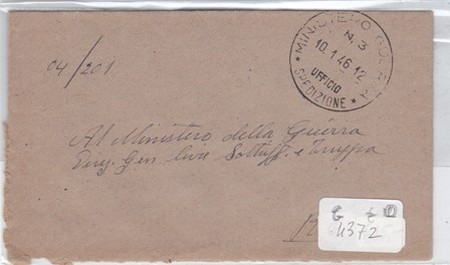 MINISTERO GUERRA
N. 3
10.1.46.12
UFFICIO
SPEDIZIONE
04/201
Al Ministero della Guerra
Gen. Civ. Sottuff. e Truppa
R
4372